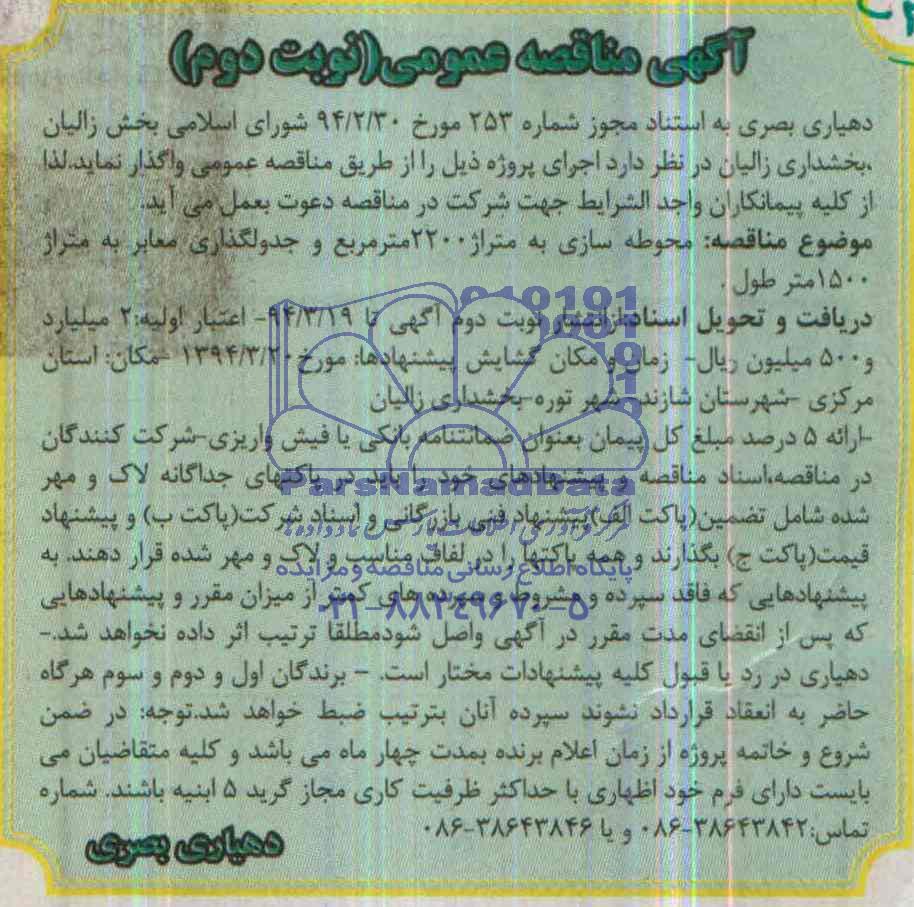 آگهی مناقصه عمومی(نوبت دوم)
دهیاری بصری به استناد مجوز شماره ۲۵۳ مورخ ۹۴/۲/۳۰ شورای اسلامی بخش زالیان
،بخشداری زالیان در نظر دارد اجرای پروژه ذیل را از طریق مناقصه عمومی واگذار نماید.لذا
از کلیه پیمانکاران واجد الشرایط جهت شرکت در مناقصه دعوت بعمل می آید.
موضوع مناقصه: محوطه سازی به متراژ۲۲۰۰مترمربع و جدولگذاری معابر به متراژ
۱۵۰۰متر طول .
دریافت و تحویل اسناد:ازانتشار نوبت دوم آگهی تا ۹۴/۳/۱۹- اعتبار اولیه:۲ میلیارد
و۵۰۰ میلیون ریال- زمان و مکان گشایش پیشنهادها: مورخ۱۳۹۴/۳/۲۰ -مکان: استان
مرکزی -شهرستان شازند-شهر توره-بخشداری زالیان
-ارائه ۵ درصد مبلغ کل پیمان بعنوان ضمانتنامه بانکی یا فیش واریزی-شرکت کنندگان
در مناقصه،اسناد مناقصه و پیشنهادهای خود را باید در پاکتهای جداگانه لاک و مهر
شده شامل تضمین(پاکت الف)پیشنهاد فنی بازرگانی و اسناد شرکت(پاکت ب) و پیشنهاد
قیمت(پاکت ج) بگذارند و همه پاکتها را در لفاف مناسب و لاک و مهر شده قرار دهند. به
پیشنهادهایی که فاقد سپرده و مشروط و سپرده های کمتر از میزان مقرر و پیشنهادهایی
که پس از انقضای مدت مقرر در آگهی واصل شودمطلقا ترتیب اثر داده نخواهد شد.-
دهیاری در رد یا قبول کلیه پیشنهادات مختار است. - برندگان اول و دوم و سوم هرگاه
حاضر به انعقاد قرارداد نشوند سپرده آنان بترتیب ضبط خواهد شد.توجه: در ضمن
شروع و خاتمه پروژه از زمان اعلام برنده بمدت چهار ماه می باشد و کلیه متقاضیان می
بایست دارای فرم خود اظهاری با حداکثر ظرفیت کاری مجاز گرید ۵ ابنیه باشند. شماره
تماس:۳۸۶۴۳۸۴۲-۰۸۶ و یا ۳۸۶۴۳۸۴۶-۰۸۶
دهیاری بصری
ParsNamadData
پایگاه اطلاع رسانی مناقصه و مزایده
۰۲۱-۸۸۳۴۹۶۷۰-۵